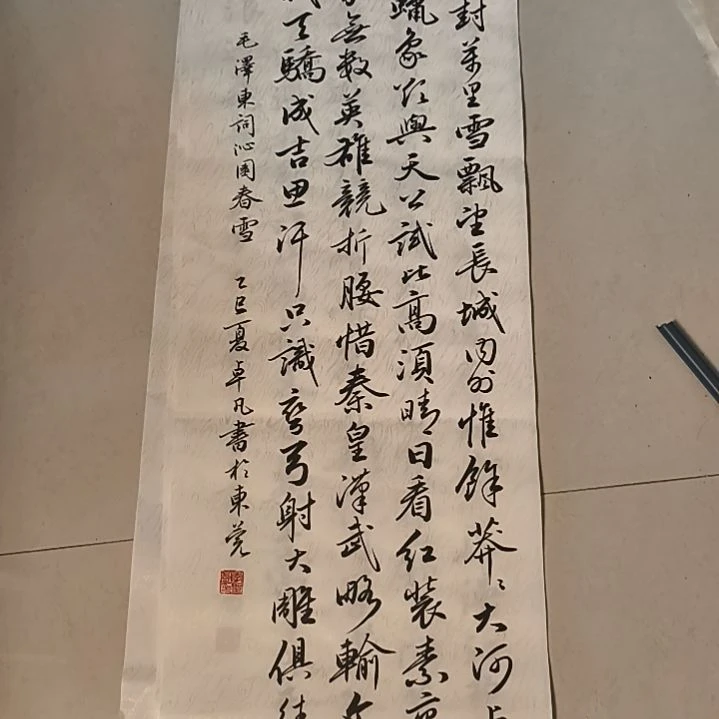 封萬里雪飄望長城内外惟餘莽〻大河上
蠟象欲與天公試比高須晴日看紅裝素裹
無數英雄競折腰惜秦皇漢武略輸文
代天驕成吉思汗只識彎弓射大雕俱往
毛澤東詞沁園春雪 乙巳夏卓凡書於東莞